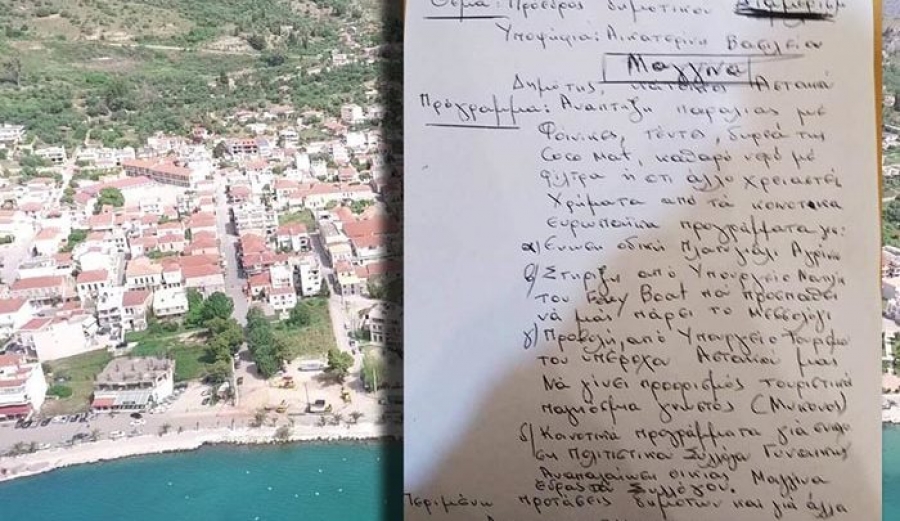 Θέμα: Πρόεδρος δημοτικού
Υποψήφια: Αικατερίνη Βασιλείου
Μαγγίνα
Δημότης, Αστακό
Πρόγραμμα: Αναπτηξη παραλίας με
Φοίνικες, τέντες, δωρεά της
Coco Mat, καθαρό νερό με
φίλτρα ή οτι άλλο χρειαστεί
Χρήματα από τα κοινοτικα
ευρωπαϊκα προγράμματα γι:
α) Ενωση οδικη Πλατυγιάλι Αγρίνιο
β) Στηριξη από Υπουργείο Ναυλη
του Ferry Boat που προσπαθεί
να μας πάρει το Μεσολόγγι
γ) Προβολή, από Υπουργείο Τουρισμο
του υπέροχου Αστακού μας
Να γίνει προορισμός τουριστικά
παγκόσμια γνωστός (Μυκονος)
δ) Κοινοτικά προγράμματα για
Πολιτιστικο Συλλόγο Γυναικης
Αναπαλαίωση οικίας Μαγγίνα
έδρας το Συλλόγου.
Περιμένω προτάσεις δημοτών και για άλλα